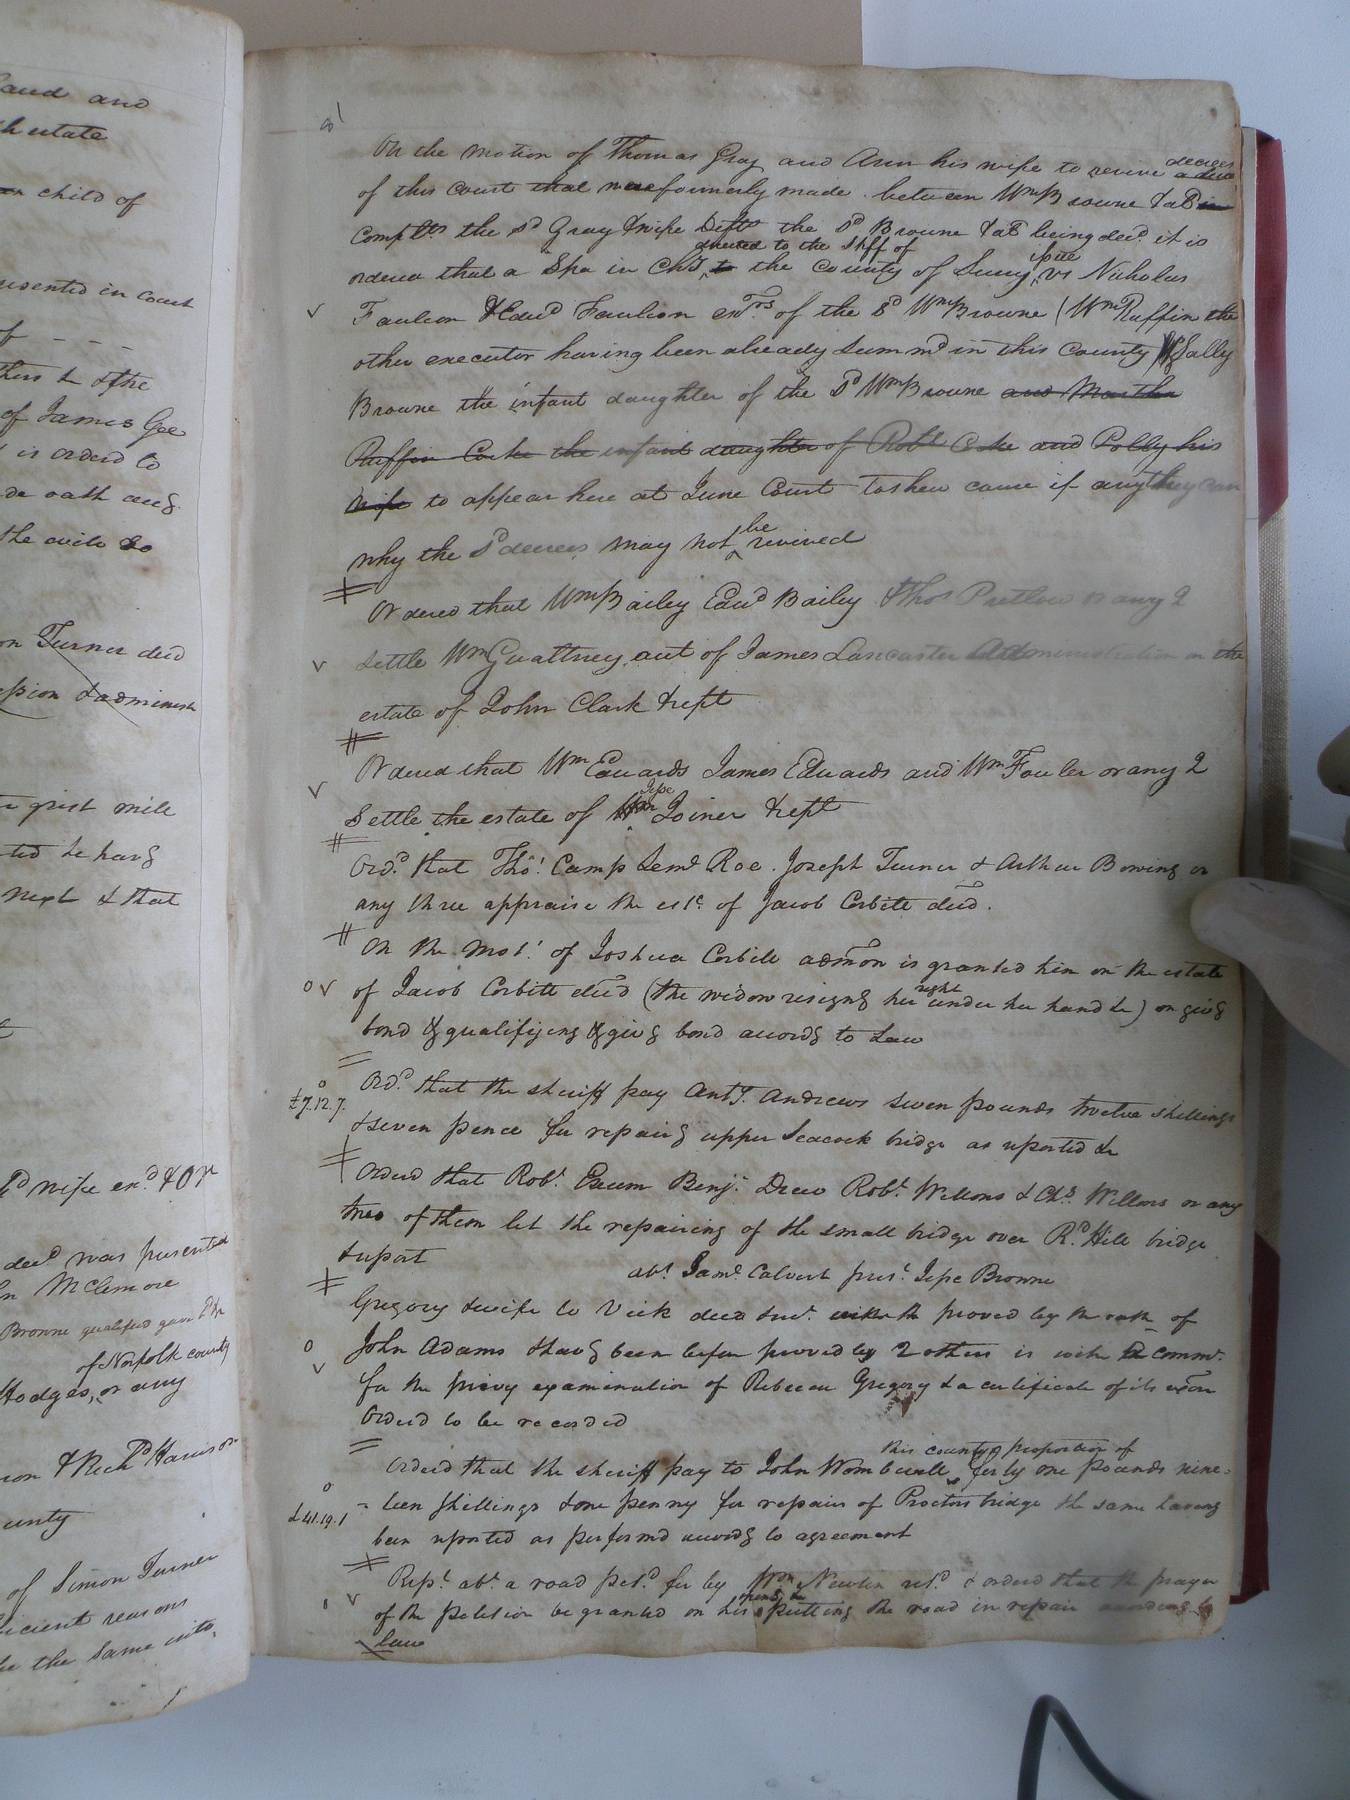 and and
estate
child of
esented in court
of - - - -
of James Gee
is orderd to
de oath aug
the exit so
on Turner decd
& administ
grist mile
next & that
sd wife exd & O
decd was presented
Mclemore
Browne qualified gave
of Norfolk county
Hodges, or any
& Richd Harrison
unty
of Simon Turner
icient reasons
the same into
8
On the motion of Thomas Gray and Ann his wife to revive decrees
of this Court that were formerly made between Wm Browne & als
Complts the sd Gray & wife Defts the sd Browne & als being decd it is
directed to the Shff of
orderd that a Spa in Chy the County of Surry issue vs Nicholas
Faulcon & Edwd Faulcon exors of the sd Wm Browne (Wm Ruffin the
other executor having been already Summd in this County) Sally
Browne the infant daughter of the sd Wm Browne and Martha
Ruffin Cocke the infant daughter of Robt Cocke and Polly his
wife to appear here at June Court to shew cause if any they can
why the sd decrees may not be revived
Ordered that Wm Bailey Edwd Bailey & Thos Pretlow or any 2
settle Wm Gwaltney act of James Lancaster Administration on the
estate of John Clark & rept
Ordered that Wm Edwards James Edwards and Wm Fowler or any 2
Settle the estate of Jesse Joiner & rept
Ord. that Tho. Camp Lemd Roe Joseph Turner & Arthur Bowing or
any three appraise the este of Jacob Corbitt decd.
On the mot. of Joshua Corbitt admon is granted him on the estate
of Jacob Corbitt decd (the widow resigng her right under her hand &c) on givg
bond & qualifying & givg bond accordg to Law
£7.12.7.
Ord. that the sheriff pay Anty. Andrews seven pounds twelve shillings
& seven pence for repairg upper Seacock bridge as reported &c
Orderd that Robt. Exum Benj. Drew Robt. Wellons & Chs. Wellons or any
two of them let the repairing of the small bridge over Rd. Hill bridge
& report
abt. Saml. Calvert prest. Jesse Browne
Gregory & wife to Vick deed Ind. proved by the oath of
John Adams & havg been before proved by 2 others is with commn.
for the privy examination of Rebecca Gregory & a certificate of its exon
Orderd to be recorded
this county's proportion of
Orderd that the sheriff pay to John Wombwell forty one pounds nine-
£41.19.1
-teen shillings & one penny for repairs of Proctors bridge the same having
been reported as performd accordg to agreement
Rept. abt. a road petd. for by Wm Newton retd. & orderd that the prayer
of the petition be granted on his openg & putting the road in repair according to
law